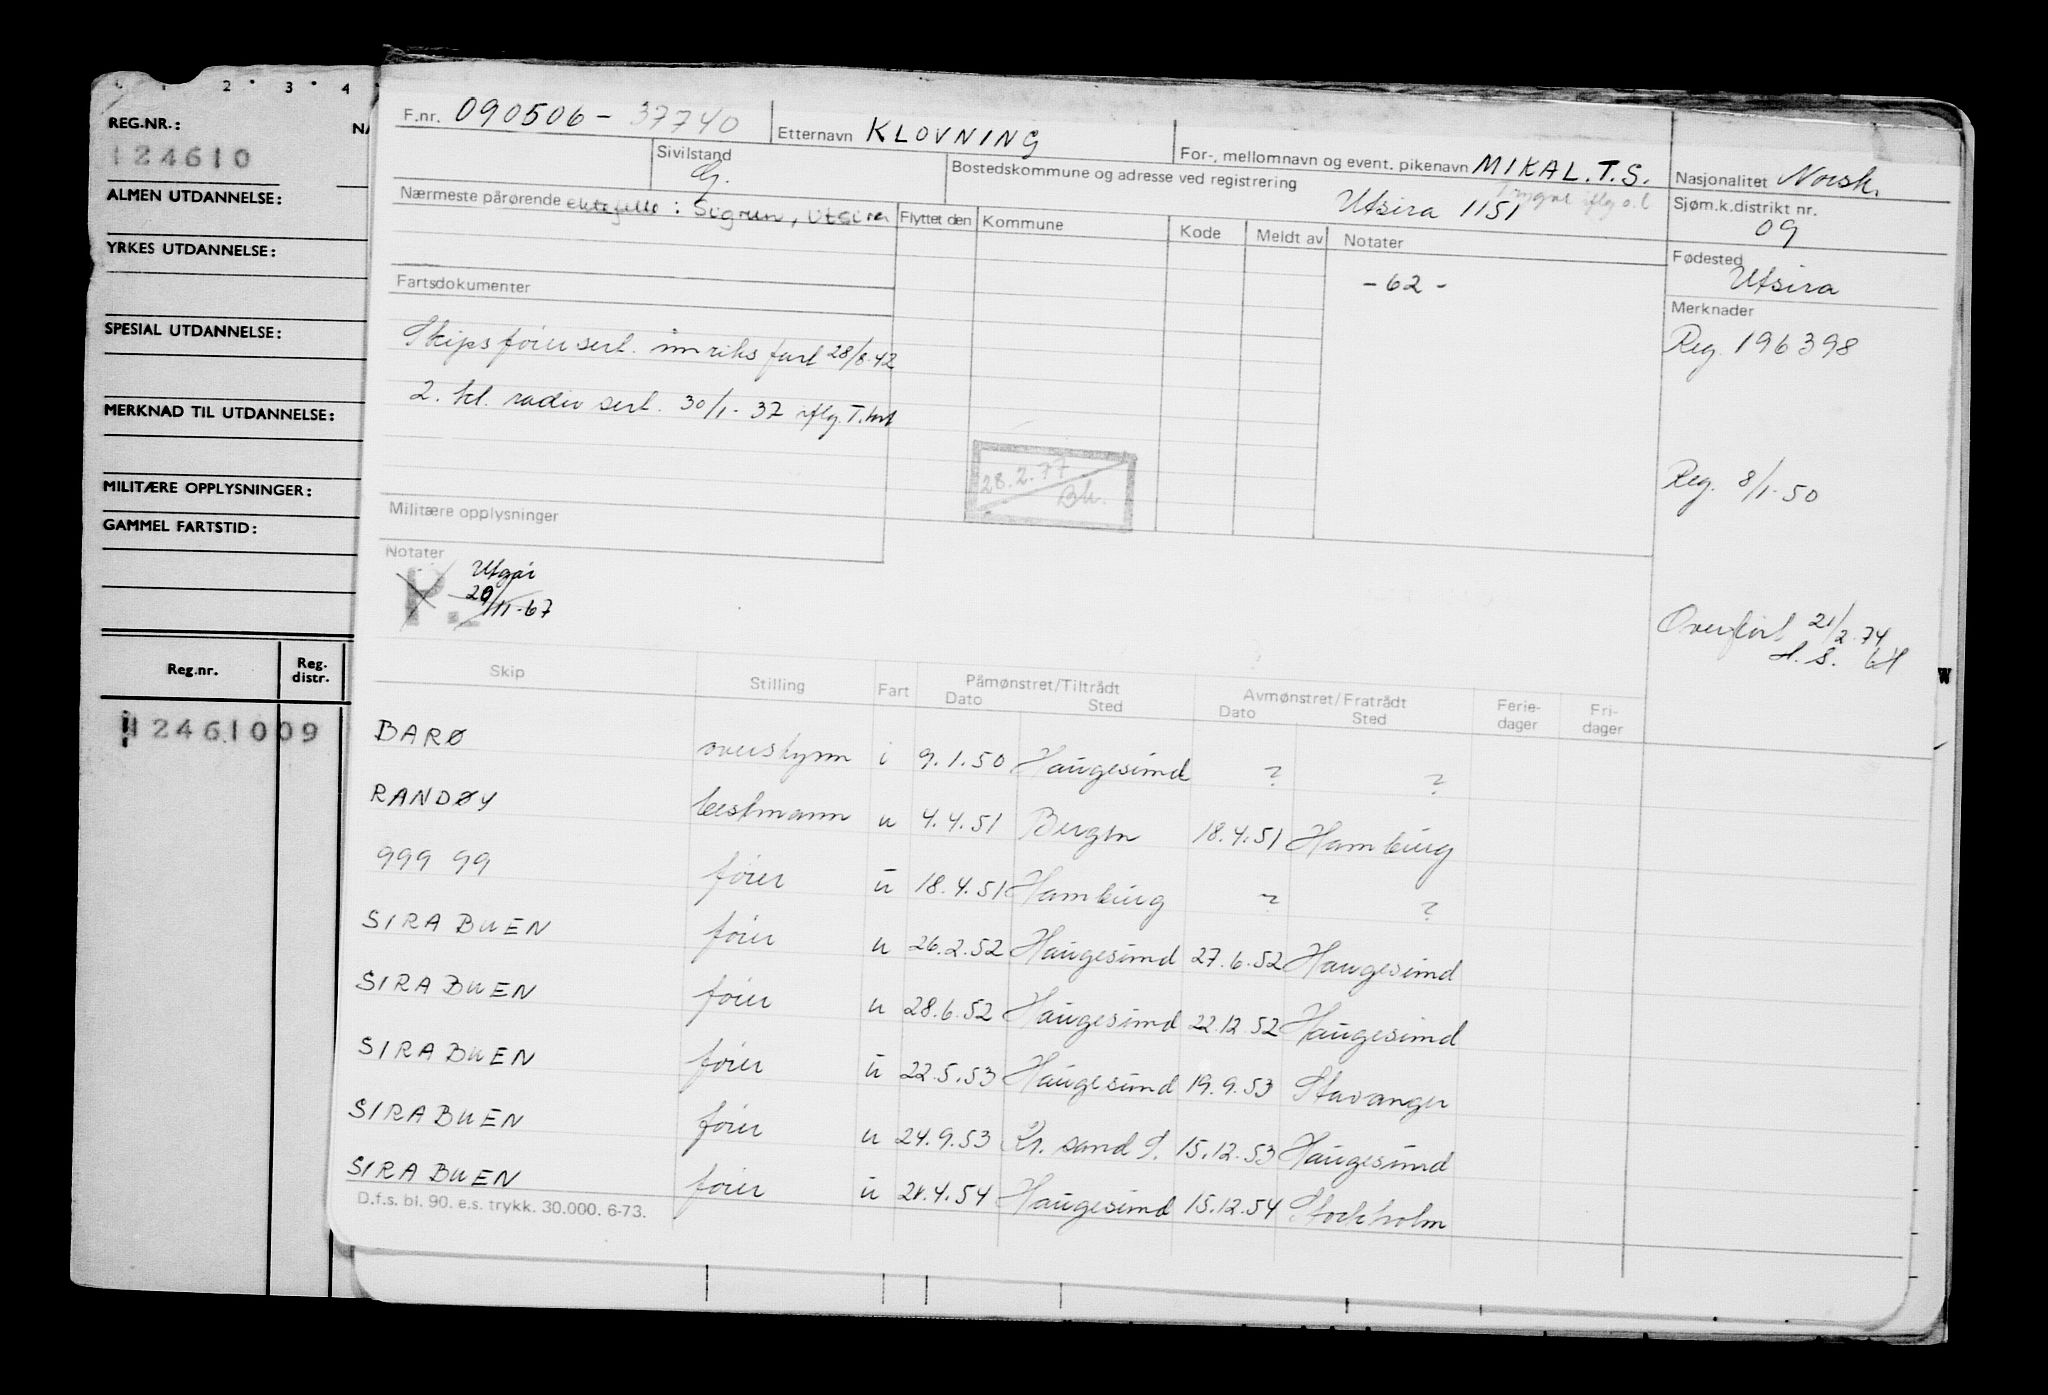 1 2 3 4
REG.NR.: NA
124610
ALMEN UTDANNELSE:
YRKES UTDANNELSE:
SPESIAL UTDANNELSE:
MERKNAD TIL UTDANNELSE:
MILITÆRE OPPLYSNINGER:
GAMMEL FARTSTID:
Reg.nr. Reg. distr.
12461009
F.nr. 090506-37740 Etternavn KLOVNING For-, mellomnavn og event. pikenavn MIKAL.T.S. Nasjonalitet Norsk.
Sivilstand G. Bostedskommune og adresse ved registrering Utsira 1151 iflg o.l Sjøm.k.distrikt nr. 09
Nærmeste pårørende ektefelle: Sigrun, Utsira Flyttet den Kommune Kode Meldt av Notater
-62-
Fødested Utsira
Merknader
Reg. 196398
Fartsdokumenter
Skipsførersert. innriks fart 28/8.42
2. kl. radio sert. 30/1-37 iflg. T.kort
28.2.77
Bh.
Reg. 8/1-50
Militære opplysninger
Notater
P. Utgår
20/11-67
Overført 21/2.74
Skip Stilling Fart Påmønstret/Tiltrådt Dato Sted Avmønstret/Fratrådt Dato Sted Ferie-dager Fri-dager
BARØ overstyrm i 9.1.50 Haugesund ? ?
RANDØY bestmann u 4.4.51 Bergen 18.4.51 Hamburg
999 99 fører u 18.4.51 Hamburg ? ?
SIRABUEN fører u 26.2.52 Haugesund 27.6.52 Haugesund
SIRABUEN fører u 28.6.52 Haugesund 22.12.52 Haugesund
SIRABUEN fører u 22.5.53 Haugesund 19.9.53 Stavanger
SIRABUEN fører u 24.9.53 Kr.sand S. 15.12.53 Haugesund
SIRABUEN fører u 21.4.54 Haugesund 15.12.54 Stockholm
D.f.s. bl. 90. e.s. trykk. 30.000. 6-73.
W